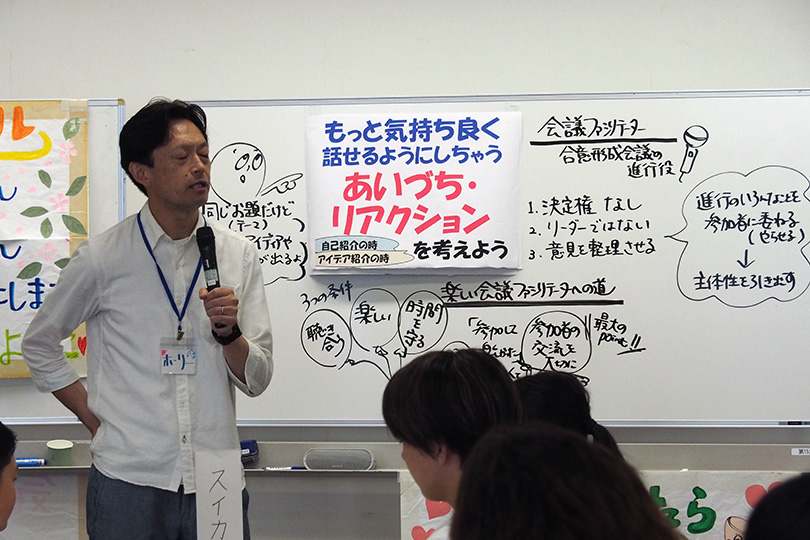 もっと気持ち良く
話せるようにしちゃう
あいづち・
リアクション
自己紹介の時
アイデア紹介の時
を考えよう
同じお題だけど
(テーマ)
アイディアや
が出るよ
会議ファシリテーター
合意形成会議の
進行役
1. 決定権 なし
2. リーダーではない
3. 意見を整理させる
進行のいろんなことを
参加者に委ねる
(やらせる)
↓
主体性を引き出す
3つの条件
聴き合う
楽しい
時間を守る
楽しい会議ファシリテーターへの道
「参加して
参加者の
交流を
最大の
point!!
ほーりー
スイカ